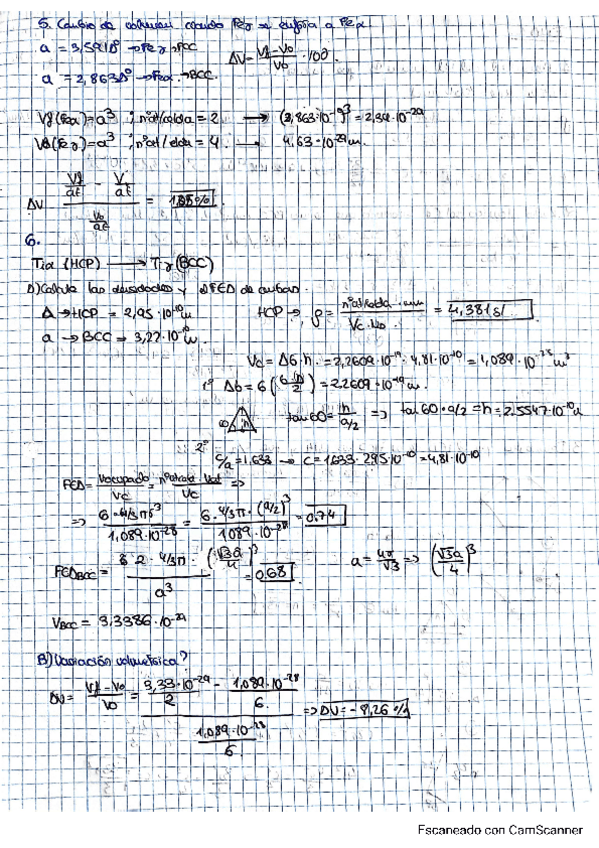 5. Cambio de volumen cuando Feγ se enfría a Feα
a = 3,591Å → Feγ → FCC
ΔV = Vf - Vo / Vo · 100
a = 2,863Å → Feα → BCC.
Vf(Feα) = a³ ; nºat/celda = 2 → (2,863·10⁻¹⁰)³ = 2,34·10⁻²⁹
Vo(Feγ) = a³ ; nºat/celda = 4 → 4,63·10⁻²⁹ m.
ΔV Vf/at - V/at / Vo/at =
6.
Tiα (HCP) → Tiγ (BCC)
A) Calcule las densidades y FED de ambas.
a → HCP = 2,95·10⁻¹⁰ m
HCP → ρ = nºat/celda · / Vc·No = 4,381 g/
a → BCC = 3,27·10⁻¹⁰ m
Vc = Ab·h = 2,2609·10⁻¹⁹ · 4,81·10⁻¹⁰ = 1,089·10⁻²⁸ m³
1º Ab = 6 ( /2) = 2,2609·10⁻¹⁹ m.
60 h tan 60 = h / a/2 => tan 60 · a/2 = h = 2,5547·10⁻¹⁰
2º
c/a = 1,633 → c = 1,633 · 2,95·10⁻¹⁰ = 4,81·10⁻¹⁰
FED = Vocupado / Vc = nºat/celda · Vat / Vc =>
=> 6·4/3πr³ / 1,089·10⁻²⁸ = 6·4/3π·(a/2)³ / 1,089·10⁻²⁸ = 0,74
FED BCC = 2·4/3π·(√3a/4)³ / a³ = 0,68
a = 4r/√3 => (√3a/4)³
V BCC = 3,3386·10⁻²⁹
B) Variación volumétrica?
DV = Vf - Vo / Vo = 3,33·10⁻²⁹/2 - 1,089·10⁻²⁸/6 / 1,089·10⁻²⁸/6 => DV = -8,26 %
Escaneado con CamScanner